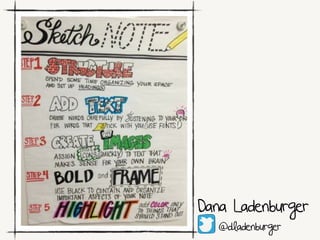 Sketch NOTE
STEP 1 STRUCTURE
SPEND SOME TIME ORGANIZING YOUR SPACE
AND SET UP HEADINGS
STEP 2 ADD TEXT
CHOOSE WORDS CAREFULLY BY LISTENING TO YOUR
FOR WORDS THAT STICK WITH YOU (USE FONTS)
STEP 3 CREATE IMAGES
ASSIGN ICONS (QUICKLY) TO TEXT THAT
MAKES SENSE FOR YOUR OWN BRAIN
STEP 4 BOLD and FRAME
USE BLACK TO CONTAIN AND ORGANIZE
IMPORTANT ASPECTS OF YOUR NOTE
STEP 5 HIGHLIGHT add COLOR only
TO THINGS THAT
SHOULD STAND OUT
Dana Ladenburger
@dladenburger